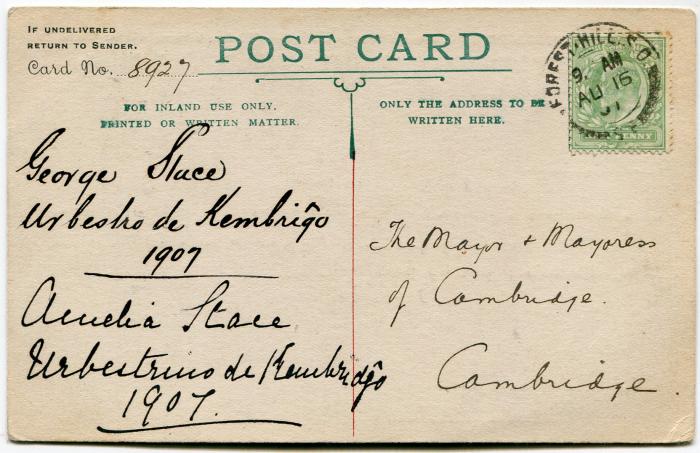 IF UNDELIVERED
RETURN TO SENDER.
Card No. 8927
POST CARD
FOR INLAND USE ONLY,
PRINTED OR WRITTEN MATTER.
ONLY THE ADDRESS TO BE
WRITTEN HERE.
FOREST-HILL. S.O
9. AM
AU 16
07
PENNY
George Stace
Urbestro de Kembriĝo
1907
Amelia Stace
Urbestrino de Kembriĝo
1907.
The Mayor & Mayoress
of Cambridge.
Cambridge.